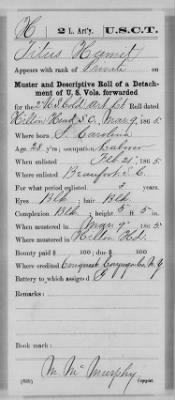 H | 2 L. Art'y. | U.S.C.T.
Titus Hamit
Appears with rank of Private on
Muster and Descriptive Roll of a Detach-
ment of U. S. Vols. forwarded
for the 2" U.S. Cold Art Roll dated
Hilton Head S.C., Mar 9, 1865
Where born S. Carolina
Age 28 y'rs; occupation Laborer
When enlisted Feb 21, 1865
Where enlisted Beaufort S.C.
For what period enlisted 3 years.
Eyes Blk; hair Blk
Complexion Blk; height 5 ft. 5 in.
When mustered in Mar 9, 1865
Where mustered in Hilton Hd.
Bounty paid $ 100; due $ 100
Where credited Conquest Cayuga Co. N.Y
Battery to which assigned
Remarks:
Book mark:
M. McMurphy
(339) Copyist.